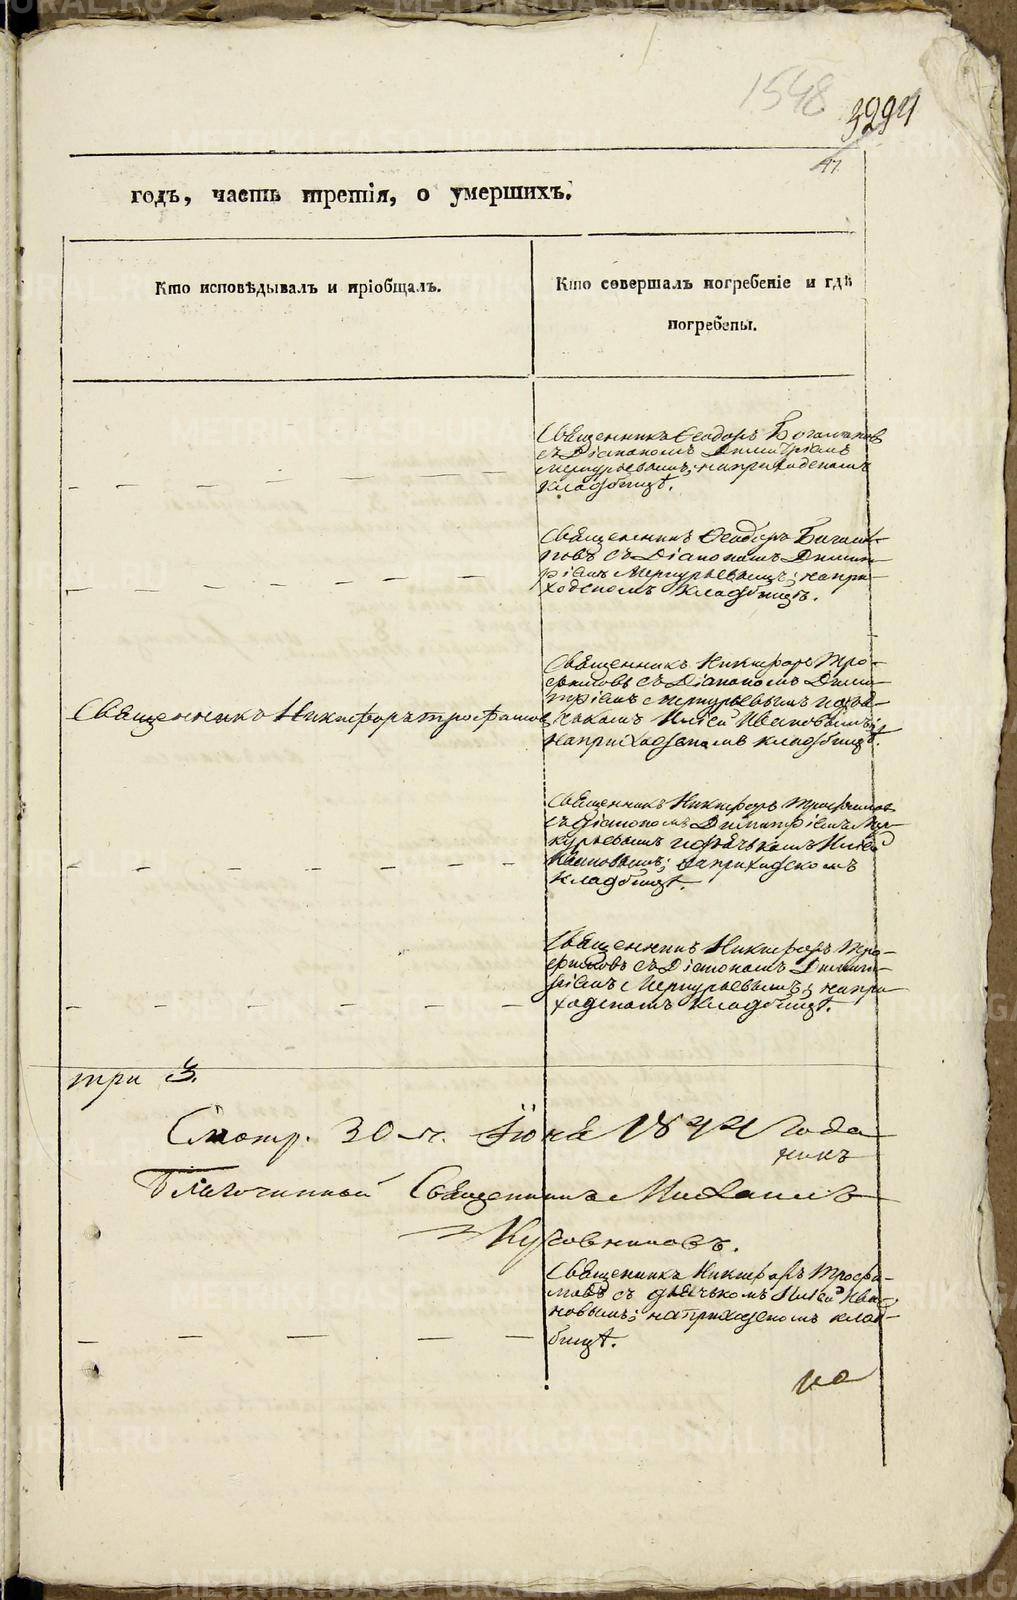 1548
3294
47.
годъ, часть третія, о умершихъ.
Кто исповѣдывалъ и пріобщалъ.
Кто совершалъ погребеніе и гдѣ
погребены.
Священникъ Ѳеодоръ Богомоловъ
съ Діакономъ Димитріемъ
Меркурьевымъ; на приходскомъ
кладбищѣ.
Священникъ Ѳеодоръ
съ Діакономъ Димит-
ріемъ Меркурьевымъ; на при-
ходскомъ кладбищѣ.
Священникъ Никифоръ Тро-
фимовъ съ Діакономъ Дими-
тріемъ Меркурьевымъ и дья-
Священникъ Никифоръ Трофимовъ
чкомъ Иліей Ивановымъ;
на приходскомъ кладбищѣ.
Священникъ Никифоръ Трофимовъ
съ Діакономъ Димитріемъ Мер-
курьевымъ и дьячкомъ Иліей
Ивановымъ; на приходскомъ
кладбищѣ.
Священникъ Никифоръ Тро-
фимовъ съ Діакономъ Димит-
ріемъ Меркурьевымъ; на при-
ходскомъ кладбищѣ.
три 3.
Смотр. 30-го Іюня 1844 года
Благочинный Священникъ Михаилъ
Священникъ Никифоръ Трофи-
мовъ съ дьячкомъ Иліей Ива-
новымъ; на приходскомъ клад-
бищѣ.
METRIKI.GASO-URAL.RU